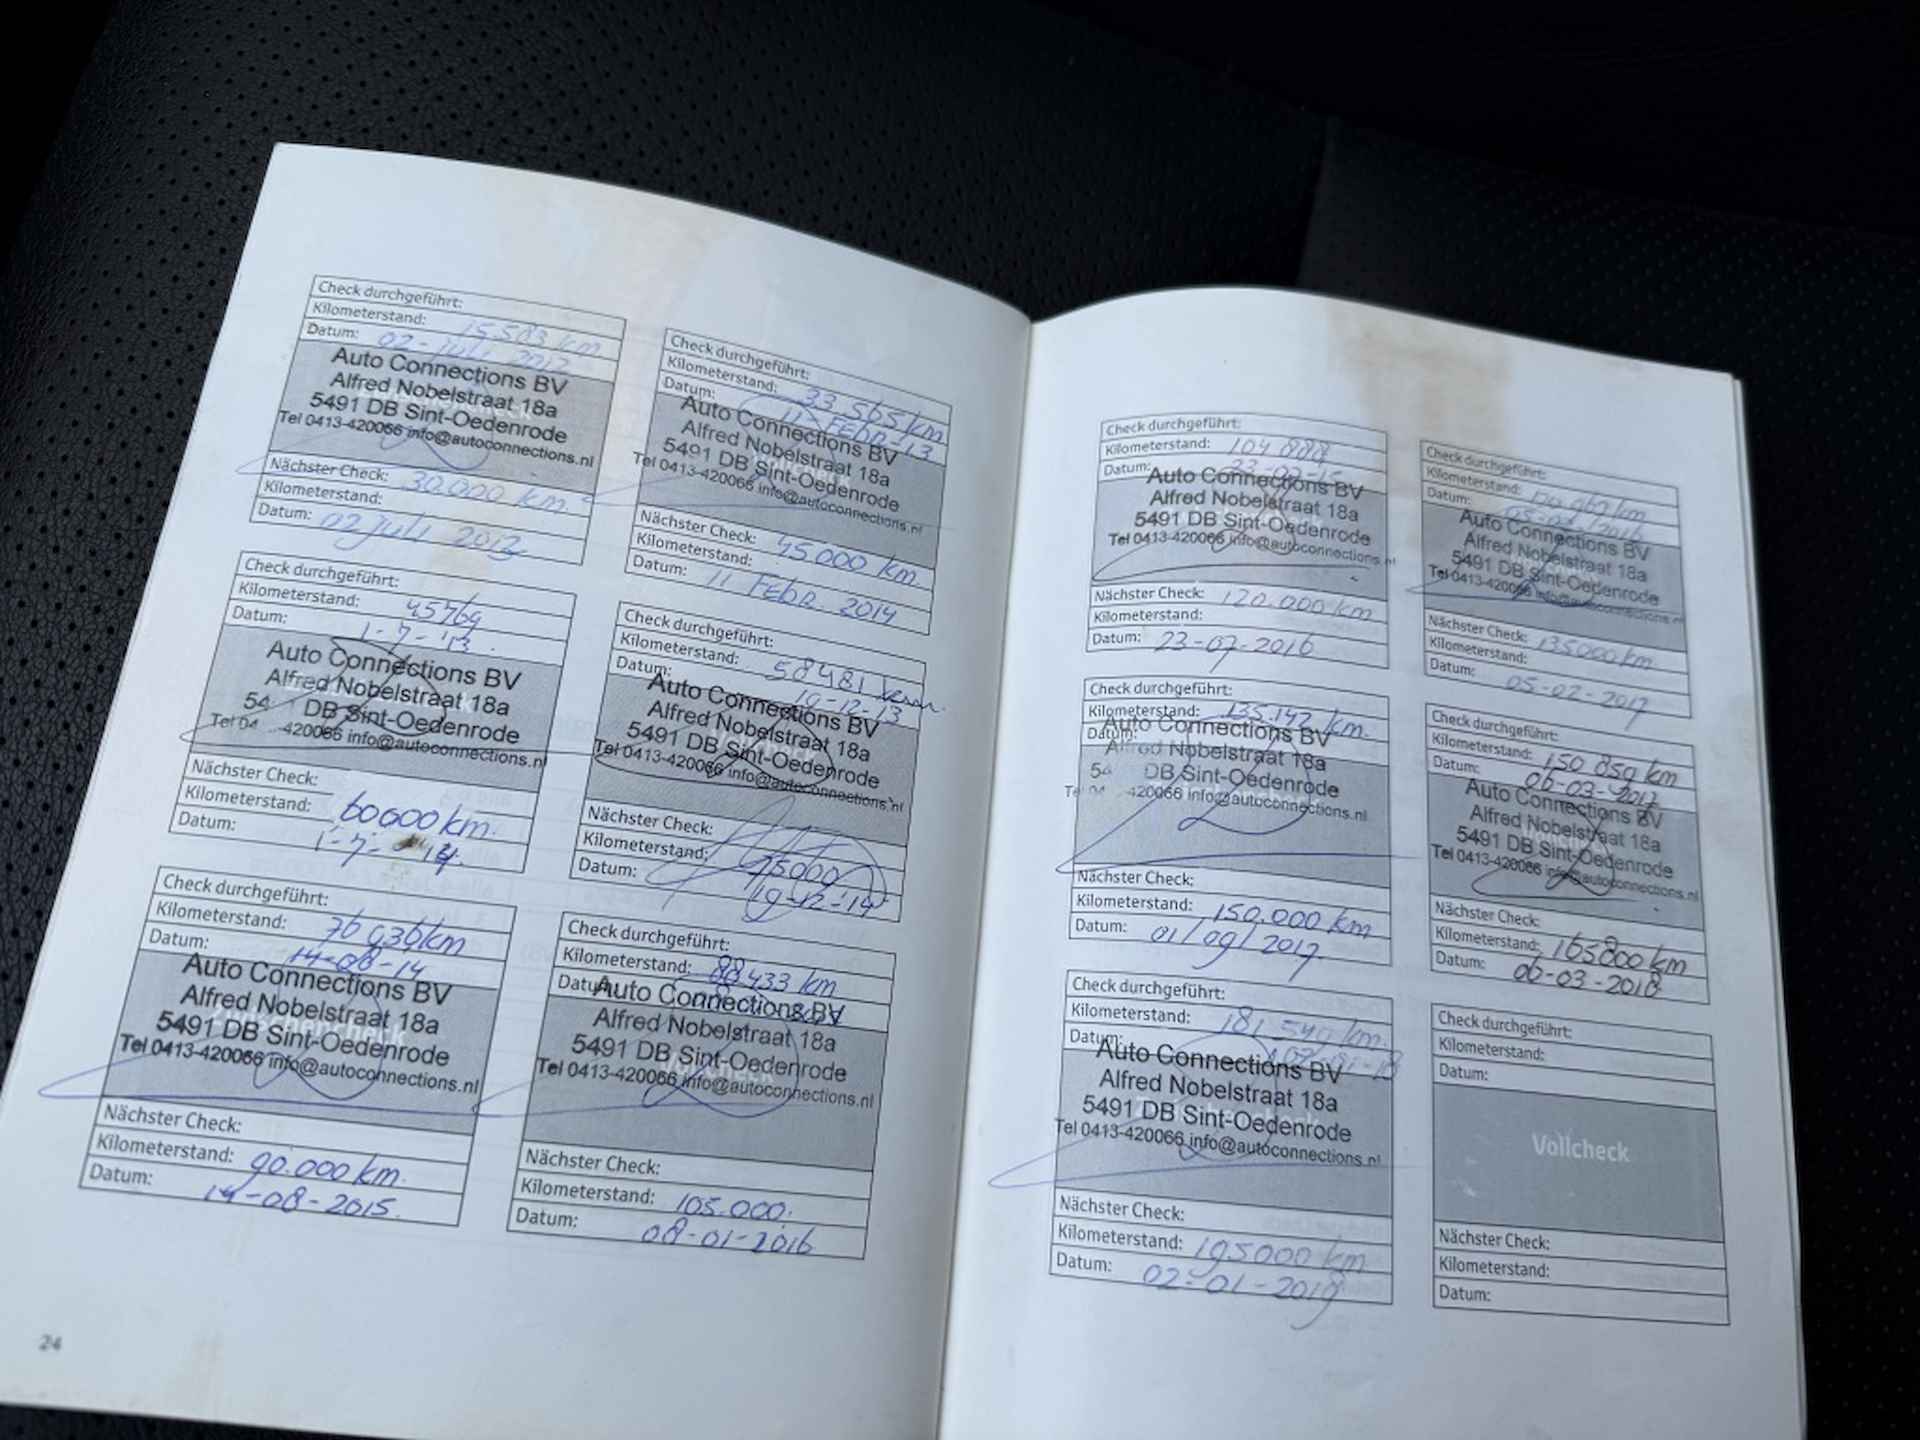 Check durchgeführt:
Kilometerstand: 15.583 km
Datum: 02-juli 2012
Auto Connections BV
Alfred Nobelstraat 18a
5491 DB Sint-Oedenrode
Tel 0413-420066 info@autoconnections.nl
Nächster Check:
Kilometerstand: 30.000 km.
Datum: 02 juli 2012
Check durchgeführt:
Kilometerstand: 33.565 km
Datum: 11 Febr-13
Auto Connections BV
Alfred Nobelstraat 18a
5491 DB Sint-Oedenrode
Tel 0413-420066 info@autoconnections.nl
Nächster Check:
Kilometerstand: 45.000 km
Datum: 11 Febr. 2014
Check durchgeführt:
Kilometerstand: 45769
Datum: 1-7-'13.
Auto Connections BV
Alfred Nobelstraat 18a
54 DB Sint-Oedenrode
Tel 04 -420066 info@autoconnections.nl
Nächster Check:
Kilometerstand: 60000 km.
Datum: 1-7- 14.
Check durchgeführt:
Kilometerstand: 58481 km.
Datum: 19-12-13
Auto Connections BV
Alfred Nobelstraat 18a
5491 DB Sint-Oedenrode
Tel 0413-420066 info@autoconnections.nl
Nächster Check:
Kilometerstand: 75000
Datum: 19-12-14
Check durchgeführt:
Kilometerstand: 76 936 km
Datum: 14-08-14
Auto Connections BV
Alfred Nobelstraat 18a
5491 DB Sint-Oedenrode
Tel 0413-420066 info@autoconnections.nl
Nächster Check:
Kilometerstand: 90.000 km.
Datum: 14-08-2015.
Check durchgeführt:
Kilometerstand: 88.433 km
Datum:
Auto Connections BV
Alfred Nobelstraat 18a
5491 DB Sint-Oedenrode
Tel 0413-420066 info@autoconnections.nl
Nächster Check:
Kilometerstand: 105.000.
Datum: 08-01-2016
24
Check durchgeführt:
Kilometerstand: 104 888
Datum: 23-07-15
Auto Connections BV
Alfred Nobelstraat 18a
5491 DB Sint-Oedenrode
Tel 0413-420066 info@autoconnections.nl
Nächster Check: 120.000 km
Kilometerstand:
Datum: 23-07-2016
Check durchgeführt:
Kilometerstand: 120 969 km
Datum: 05-02-2016
Auto Connections BV
Alfred Nobelstraat 18a
5491 DB Sint-Oedenrode
Tel 0413-420066 info@autoconnections.nl
Nächster Check:
Kilometerstand: 135000 km
Datum: 05-02-2017
Check durchgeführt:
Kilometerstand: 135.142 km.
Datum:
Auto Connections BV
Alfred Nobelstraat 18a
54 DB Sint-Oedenrode
Te 04 -420066 info@autoconnections.nl
Nächster Check:
Kilometerstand: 150.000 km
Datum: 01/09/2017.
Check durchgeführt:
Kilometerstand: 150 859 km
Datum: 06-03-2017
Auto Connections BV
Alfred Nobelstraat 18a
5491 DB Sint-Oedenrode
Tel 0413-420066 info@autoconnections.nl
Nächster Check:
Kilometerstand: 165800 km
Datum: 06-03-2018
Check durchgeführt:
Kilometerstand: 181 540 km.
Datum:
Auto Connections BV
Alfred Nobelstraat 18a
5491 DB Sint-Oedenrode
Tel 0413-420066 info@autoconnections.nl
Nächster Check:
Kilometerstand: 195000 km
Datum: 02-01-2019
Check durchgeführt:
Kilometerstand:
Datum:
Vollcheck
Nächster Check:
Kilometerstand:
Datum: